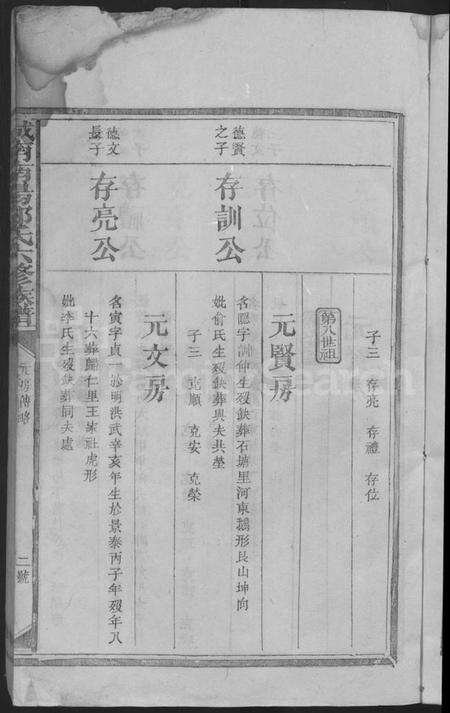 子三 存亮 存禮 存位
第八世祖
元賢房
德賢之子
存訓公
名聰字訓仲生歿缺葬石塘里河東鵝形艮山坤向
妣俞氏生歿缺葬與夫共塋
子三 克順 克安 克榮
元文房
德文長子
存亮公
名寅字貞一於明洪武辛亥年生於景泰丙子年歿年八
十六葬歸仁里王家社虎形
妣李氏生歿缺葬同夫處
氏六修族譜
二號